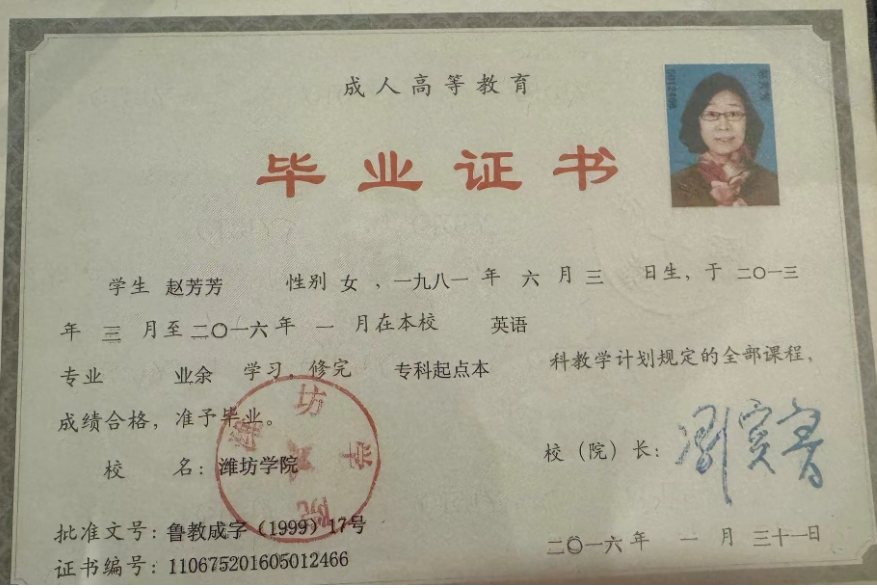 成人高等教育
毕业证书
学生 赵芳芳 性别 女 ，一九八一 年 六 月 三 日生，于 二〇一三
年 三 月至 二〇一六 年 一 月在本校 英语
专业 业余 学习，修完 专科起点本 科教学计划规定的全部课程，
成绩合格，准予毕业。
校 名：潍坊学院
校（院）长：
批准文号：鲁教成字（1999）17号
二〇一六 年 一 月 三十一日
证书编号：110675201605012466
潍坊学院